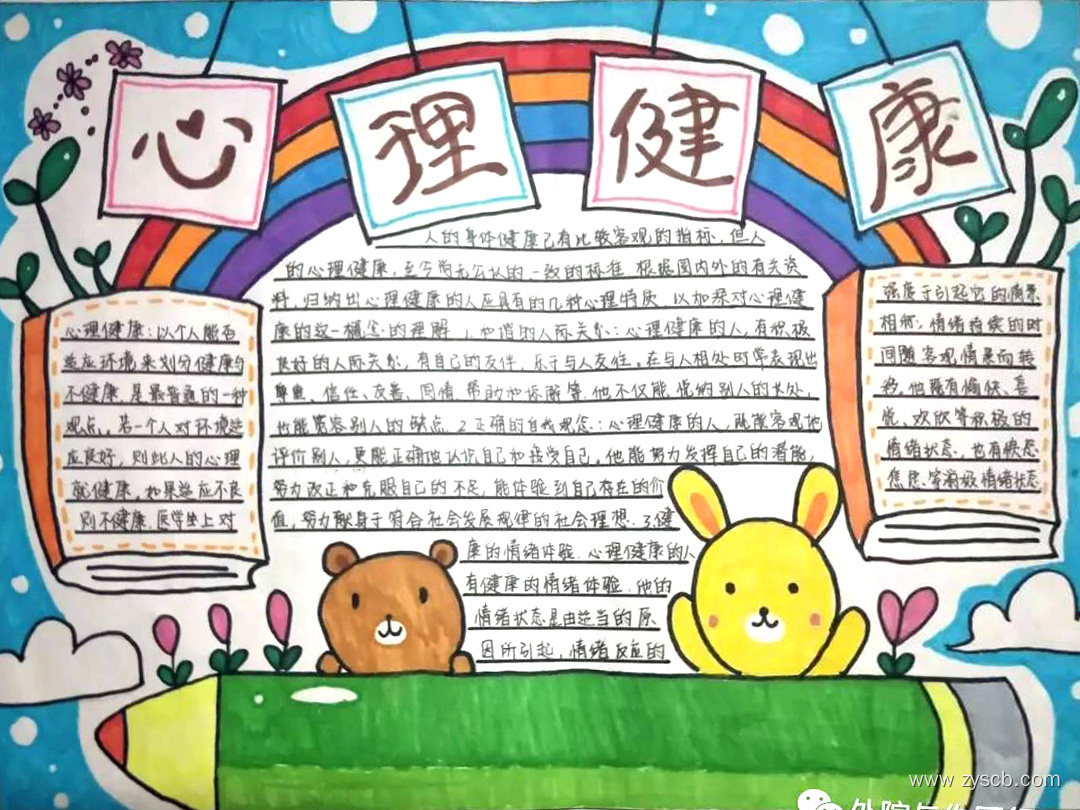 心理健康
人的身体健康已有比较客观的指标，但人
的心理健康，至今尚无公认的一致的标准 根据国内外的有关资
料，归纳出心理健康的人应具有的几种心理特质 以加深对心理健
康的这一概念的理解 1，和谐的人际关系：心理健康的人，有积极
良好的人际关系，有自己的友伴，乐于与人交往。在与人相处时常表现出
尊重、信任、友善、同情、帮助和谅解等，他不仅能悦纳别人的长处，
也能宽容别人的缺点 2 正确的自我观念：心理健康的人，既能客观地
评价别人，更能正确地认识自己和接受自己。他能努力发挥自己的潜能，
努力改正和克服自己的不足，能体验到自己存在的价
值，努力献身于符合社会发展规律的社会理想．3 健
康的情绪体验．心理健康的人
有健康的情绪体验．他的
情绪状态是由适当的原
因所引起，情绪反应的
心理健康：以个人能否
适应环境来划分健康与
不健康，是最普遍的一种
观点，若一个人对环境适
应良好，则此人的心理
就健康，如果适应不良
则不健康．医学坐上对
强度于引起它的情景
相称；情绪持续的时
间随客观情景而转
移，他既有愉快、喜
悦、欢欣等积极的
情绪状态，也有
焦虑、等消极情绪状态
www.zyscb.com